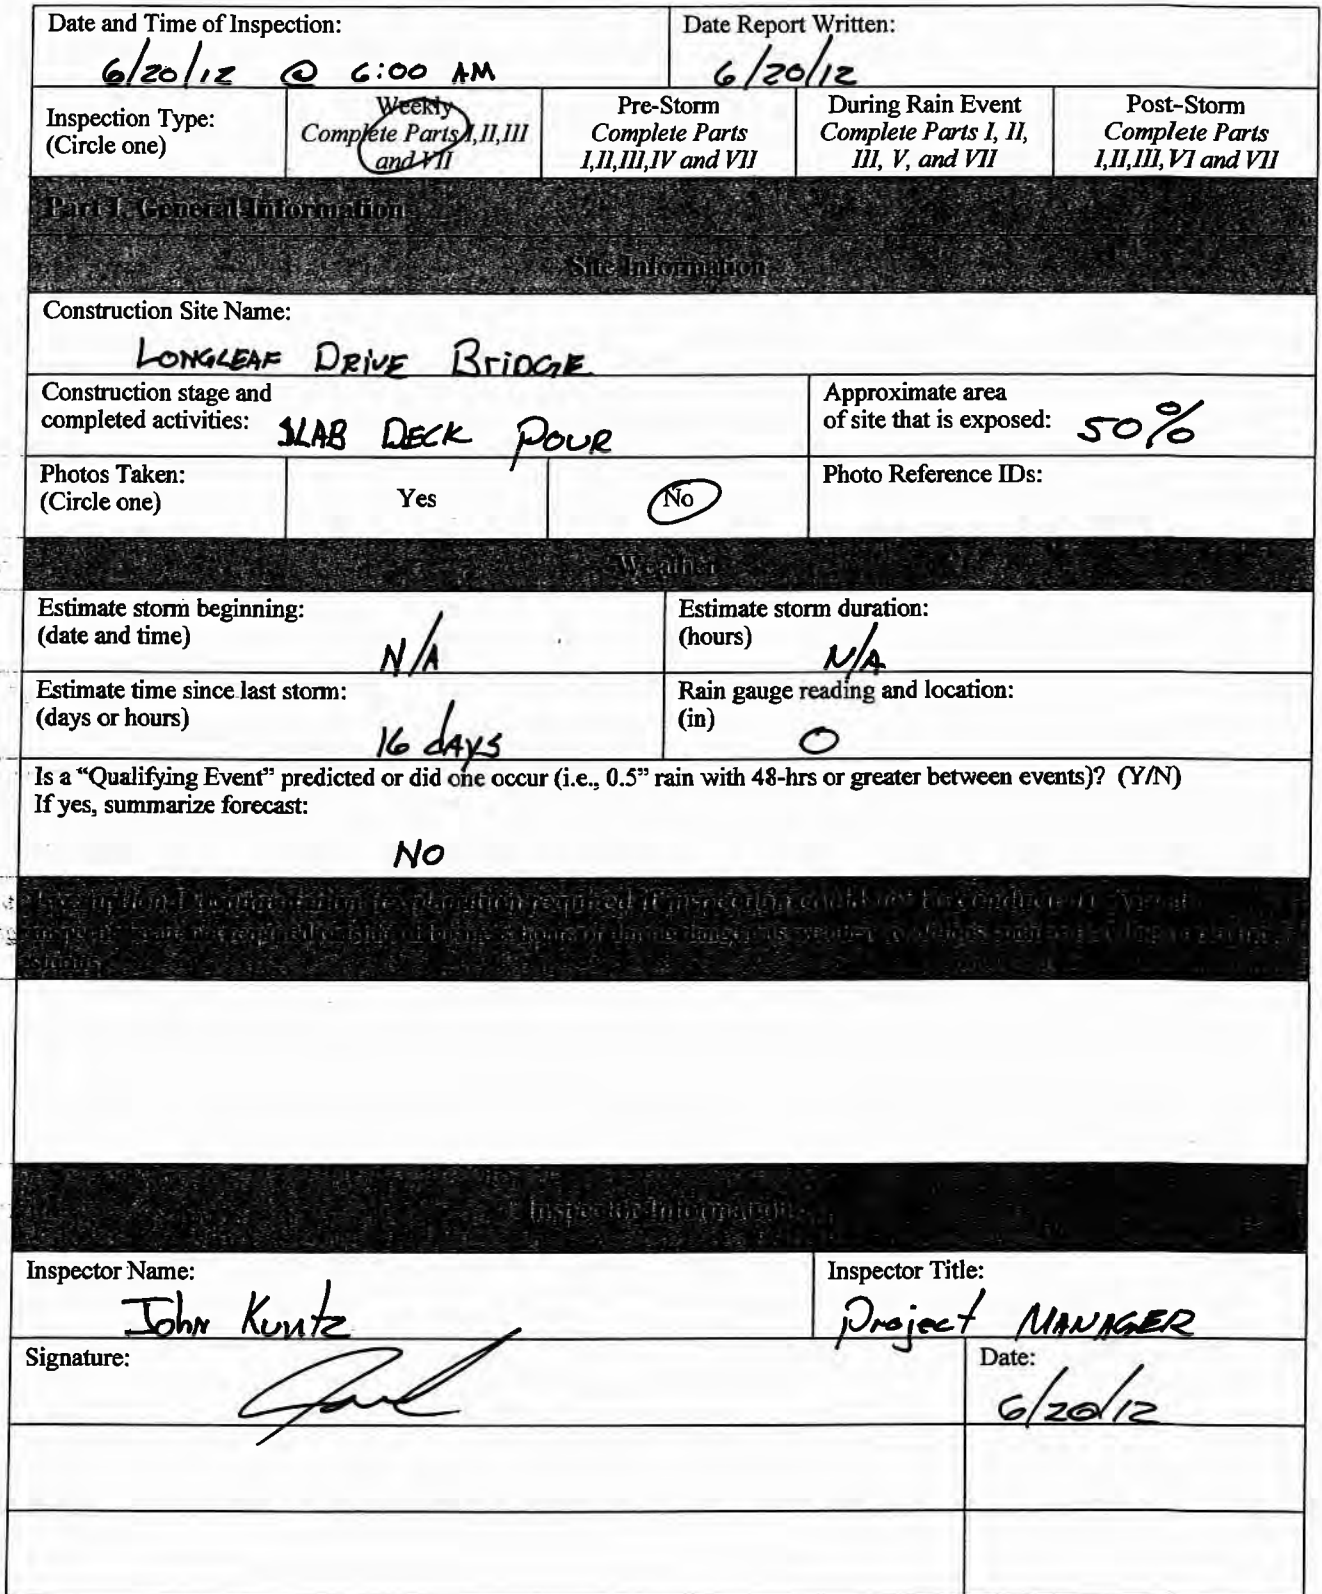 Date and Time of Inspection:
6/20/12 @ 6:00 AM
Date Report Written:
6/20/12
Inspection Type:
(Circle one)
Weekly
Complete Parts I,II,III
and VII
Pre-Storm
Complete Parts
I,II,III,IV and VII
During Rain Event
Complete Parts I, II,
III, V, and VII
Post-Storm
Complete Parts
I,II,III, VI and VII
Part I. General Information
Site Information
Construction Site Name:
LONGLEAF DRIVE BRIDGE
Construction stage and
completed activities: SLAB DECK POUR
Approximate area
of site that is exposed: 50%
Photos Taken:
(Circle one)
Yes
No
Photo Reference IDs:
Weather
Estimate storm beginning:
(date and time)
N/A
Estimate storm duration:
(hours)
N/A
Estimate time since last storm:
(days or hours)
16 dAYS
Rain gauge reading and location:
(in)
0
Is a “Qualifying Event” predicted or did one occur (i.e., 0.5” rain with 48-hrs or greater between events)? (Y/N)
If yes, summarize forecast:
NO
Exemption Documentation (explanation required if inspection could not be conducted). Visual
storms.
Inspector Information
Inspector Name:
John Kuntz
Inspector Title:
Project MANAGER
Signature:
Date:
6/20/12